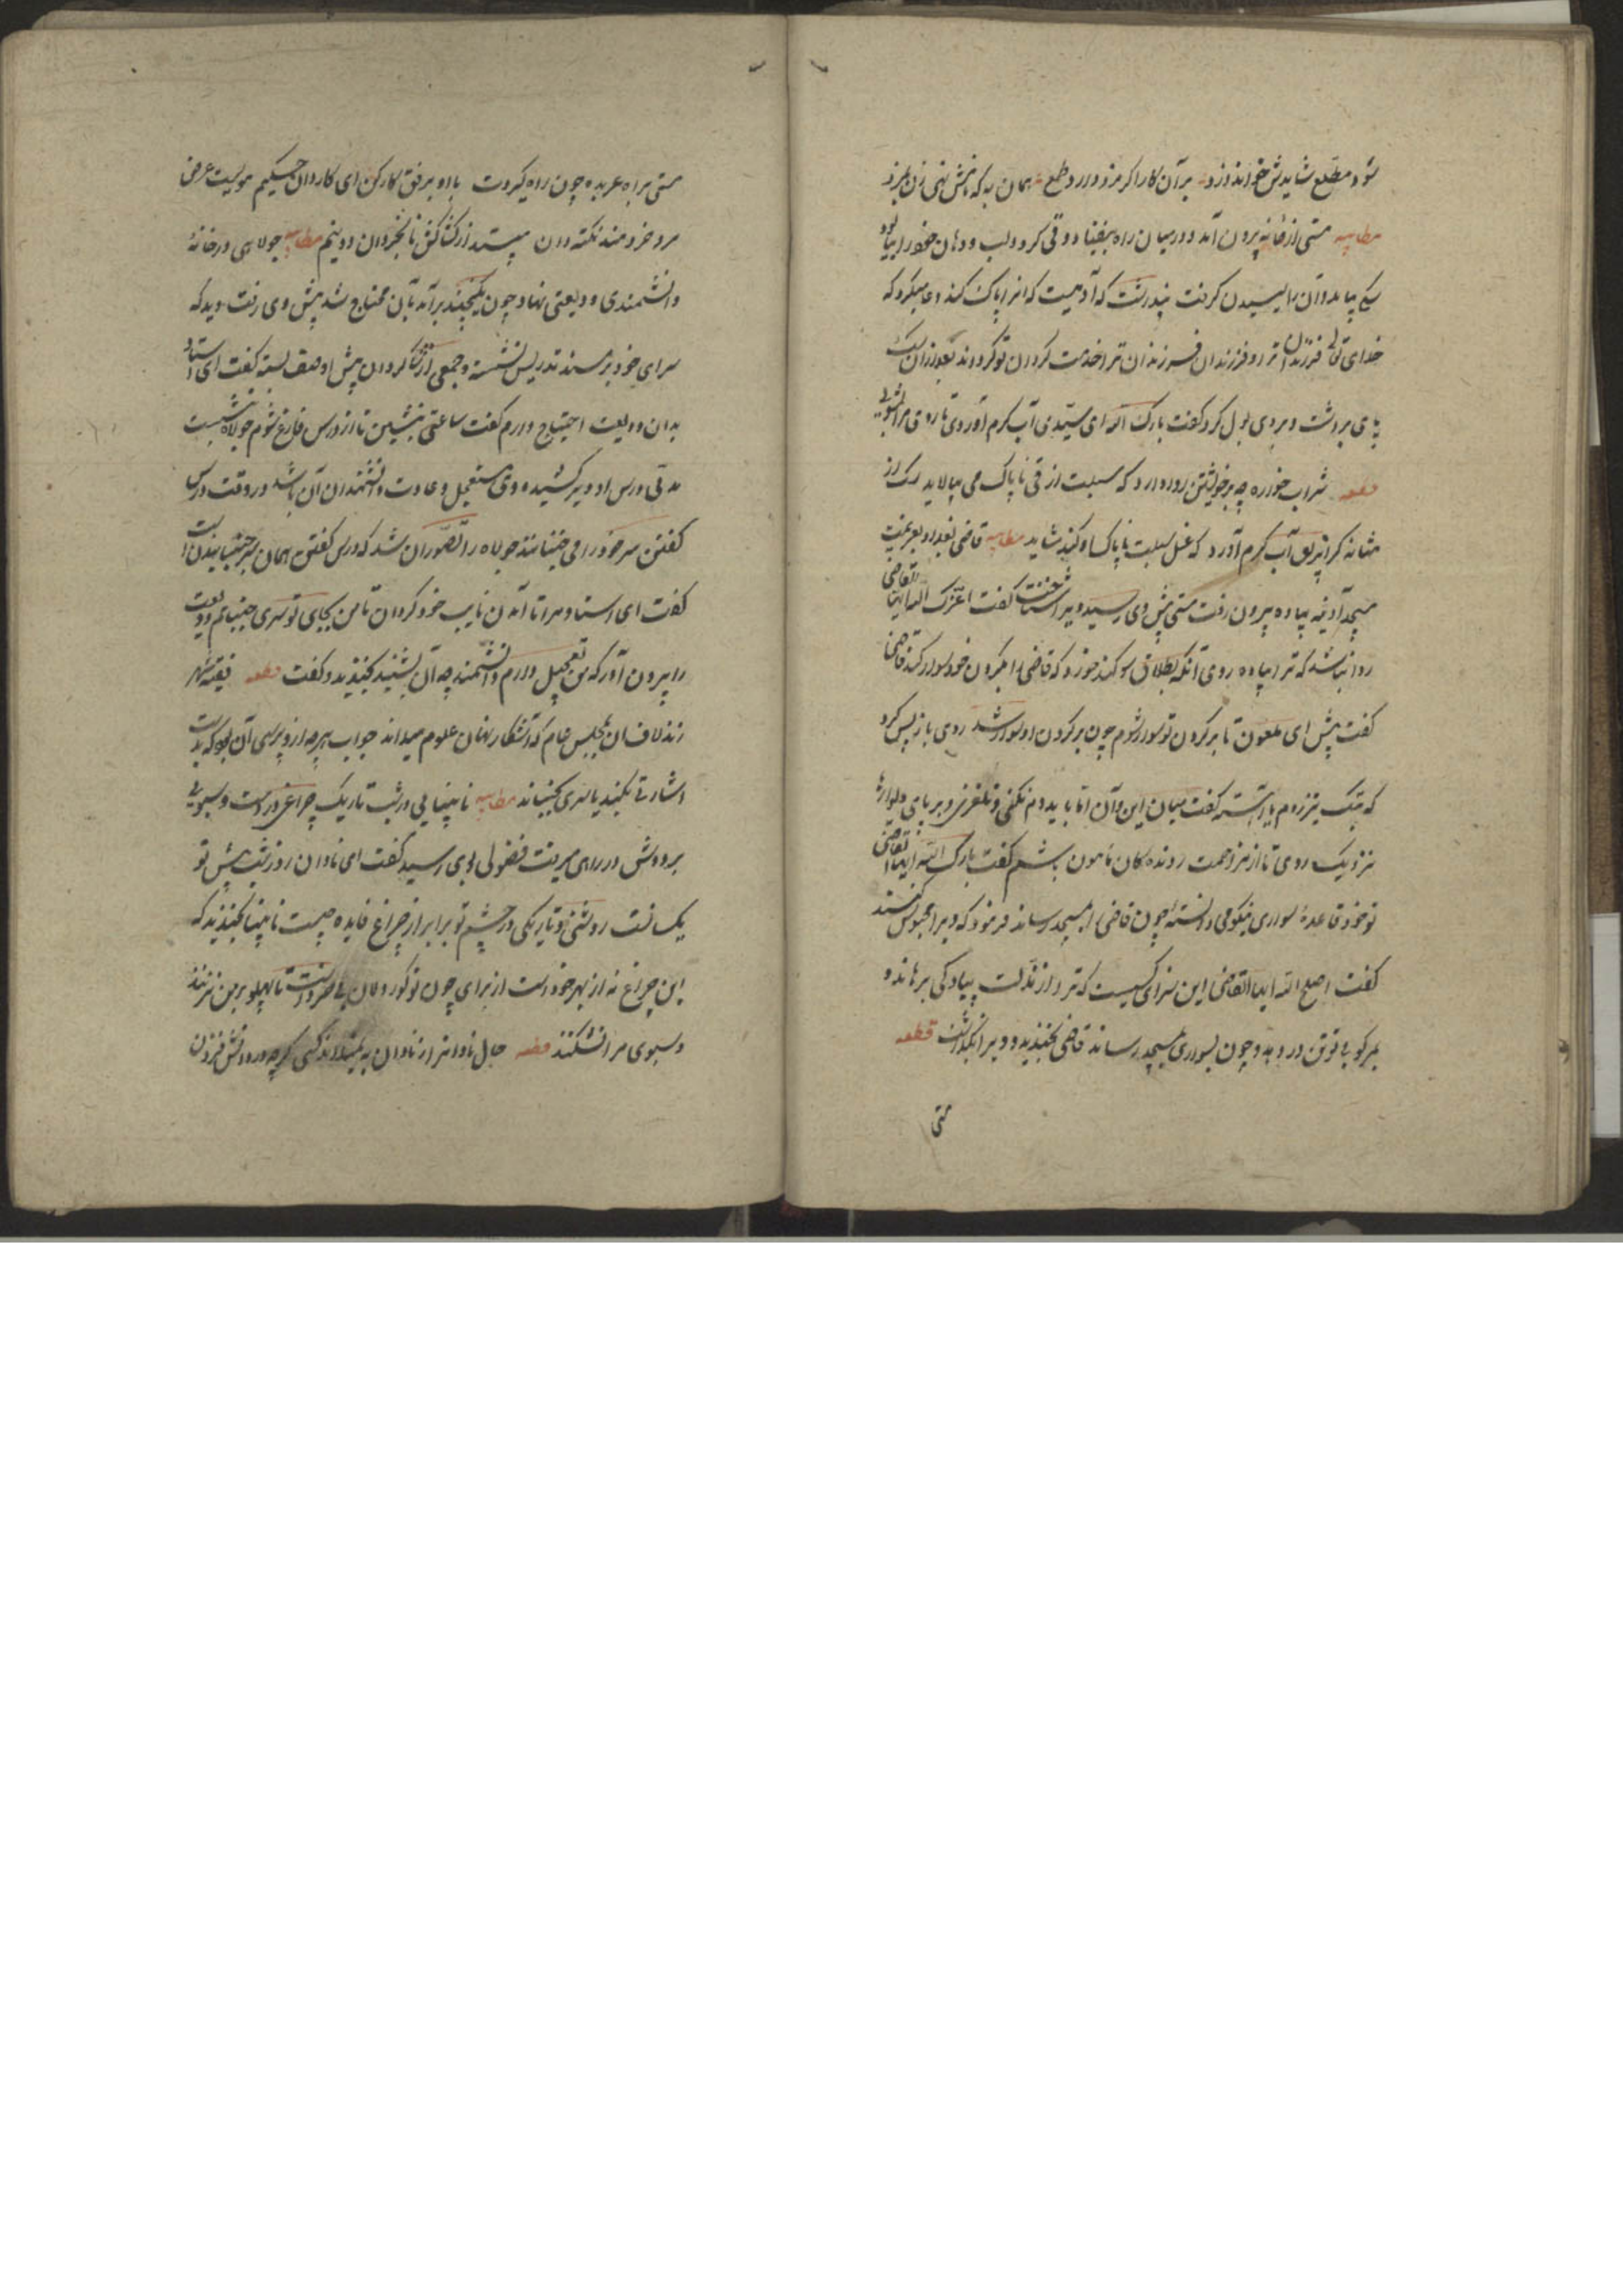 شود مطلع شایدش خواند دزد بر آن کار اگر مزد دارد طمع همان به که پیش زنی زن بمزد
مطایبه مستی از خانه بیرون آمد و در میان راه بیفتاد و قی کرد و لب و دهان خود را بیالود
سگی بیامد و آن را لیسیدن گرفت پنداشت که آدمیست که آنرا پاک میکند دعا میکرد که
خدای تعالی فرزندان ترا و فرزندان فرزندان ترا خدمت گردان تو گرداند بعد از آن سگ
پای برداشت و بر وی بول کرد گفت بارک الله ای سیدی آب گرم آوردی تا روی مرا بشویی
قطعه شراب خواره چه بر خویشتن روا دارد که سبلت از قی ناپاک می بیالاید سگ از
مثانه گر ابریق آب گرم آورد که غسل سبلت ناپاک او کند شاید مطایبه قاضی بغداد بعزیمت
مسجد آدینه پیاده بیرون رفت مستی پیش وی رسید ویرا شناخت گفت اعزک الله ایها القاضی
روا باشد که ترا پیاده روی آنگه بطلاق سوگند خورد که قاضی را بگردن خود سوار کند قاضی
گفت پیش ای ملعون تا بر گردن تو سوار شوم چون بر گردن او سوار شد روی باز پس کرد
که تیزتک روم یا آهسته گفت میان این و آن اما باید که دم نکنی و نلغزی و بر پای دیوارها
نزدیک روی تا از مزاحمت رونده گان مامون باشم گفت بارک الله ایها القاضی
تو خود قاعدهٔ سواری نیکو می دانستهٔ چون قاضی را بمسجد رساند فرمود که ویرا محبوس کنند
گفت اصلح الله ایها القاضی این سزای کسیست که ترا از مذلت پیادگی برهاند و
مرکوبی توقن در دهد و چون بسواری بمسجد رساند قاضی بخندید و ویرا بگذاشت قطعه
مستی
مستی براه عربده چون راه گیردت با او برفق کار کن ای کاردان حکیم مویست عرض
مرد خردمند نکته دان مپسند از کشاکش نابخردان دو نیم مطایبه جولاهی در خانهٔ
دانشمندی ودیعتی نهاد چون یکچند بر آمد بآن محتاج شد پیش وی رفت دید که
سرای خود بر مسند تدریس نشسته و جمعی از شاگردان پیش او صف بسته گفت ای استاد
بدان ودیعت احتیاج دارم گفت ساعتی بنشین تا از درس فارغ شوم جولاه نشست
مدتی درس او دیر کشید و وی مستعجل و عادت دانشمندان آن باشد در وقت درس
گفتن سر خود را می جنبانند جولاه را تصور آن شد که درس گفتن همان سر جنبانیدن است
گفت ای استاد مرا تا آمدن نایب خود گردان تا من بجای تو سری جنبانم ودیعت
را بیرون آور که من تعجیل دارم دانشمند چه آن بشنید بخندید و گفت قطعه فقیه شهر
زند لاف آن بمجلس عام که آشکار نهان علوم میداند جواب هر چه از و پرسی آن بود که بدست
اشارتی بکند یا سری بجنباند مطایبه نابینایی در شب تاریک چراغی در دست و سبویی
بر دوش در راهی میرفت فضولی بوی رسید گفت ای نادان روز و شب پیش تو
یکسانست روشنی و تاریکی در چشم تو برابر از چراغ فایده چیست نابینا بخندید که
این چراغ نه از بهر خود است از برای چون تو کوردلان بی خرد است تا پهلو بر من نزنند
و سبوی مرا نشکنند قطعه حال نادان را از نادان به نمیداند کسی گرچه در دانش فزون